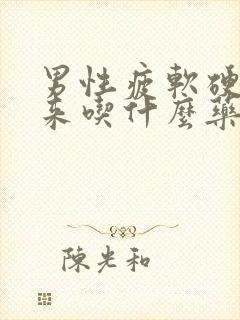 男性疲軟硬
來喫什麼藥
陳光和